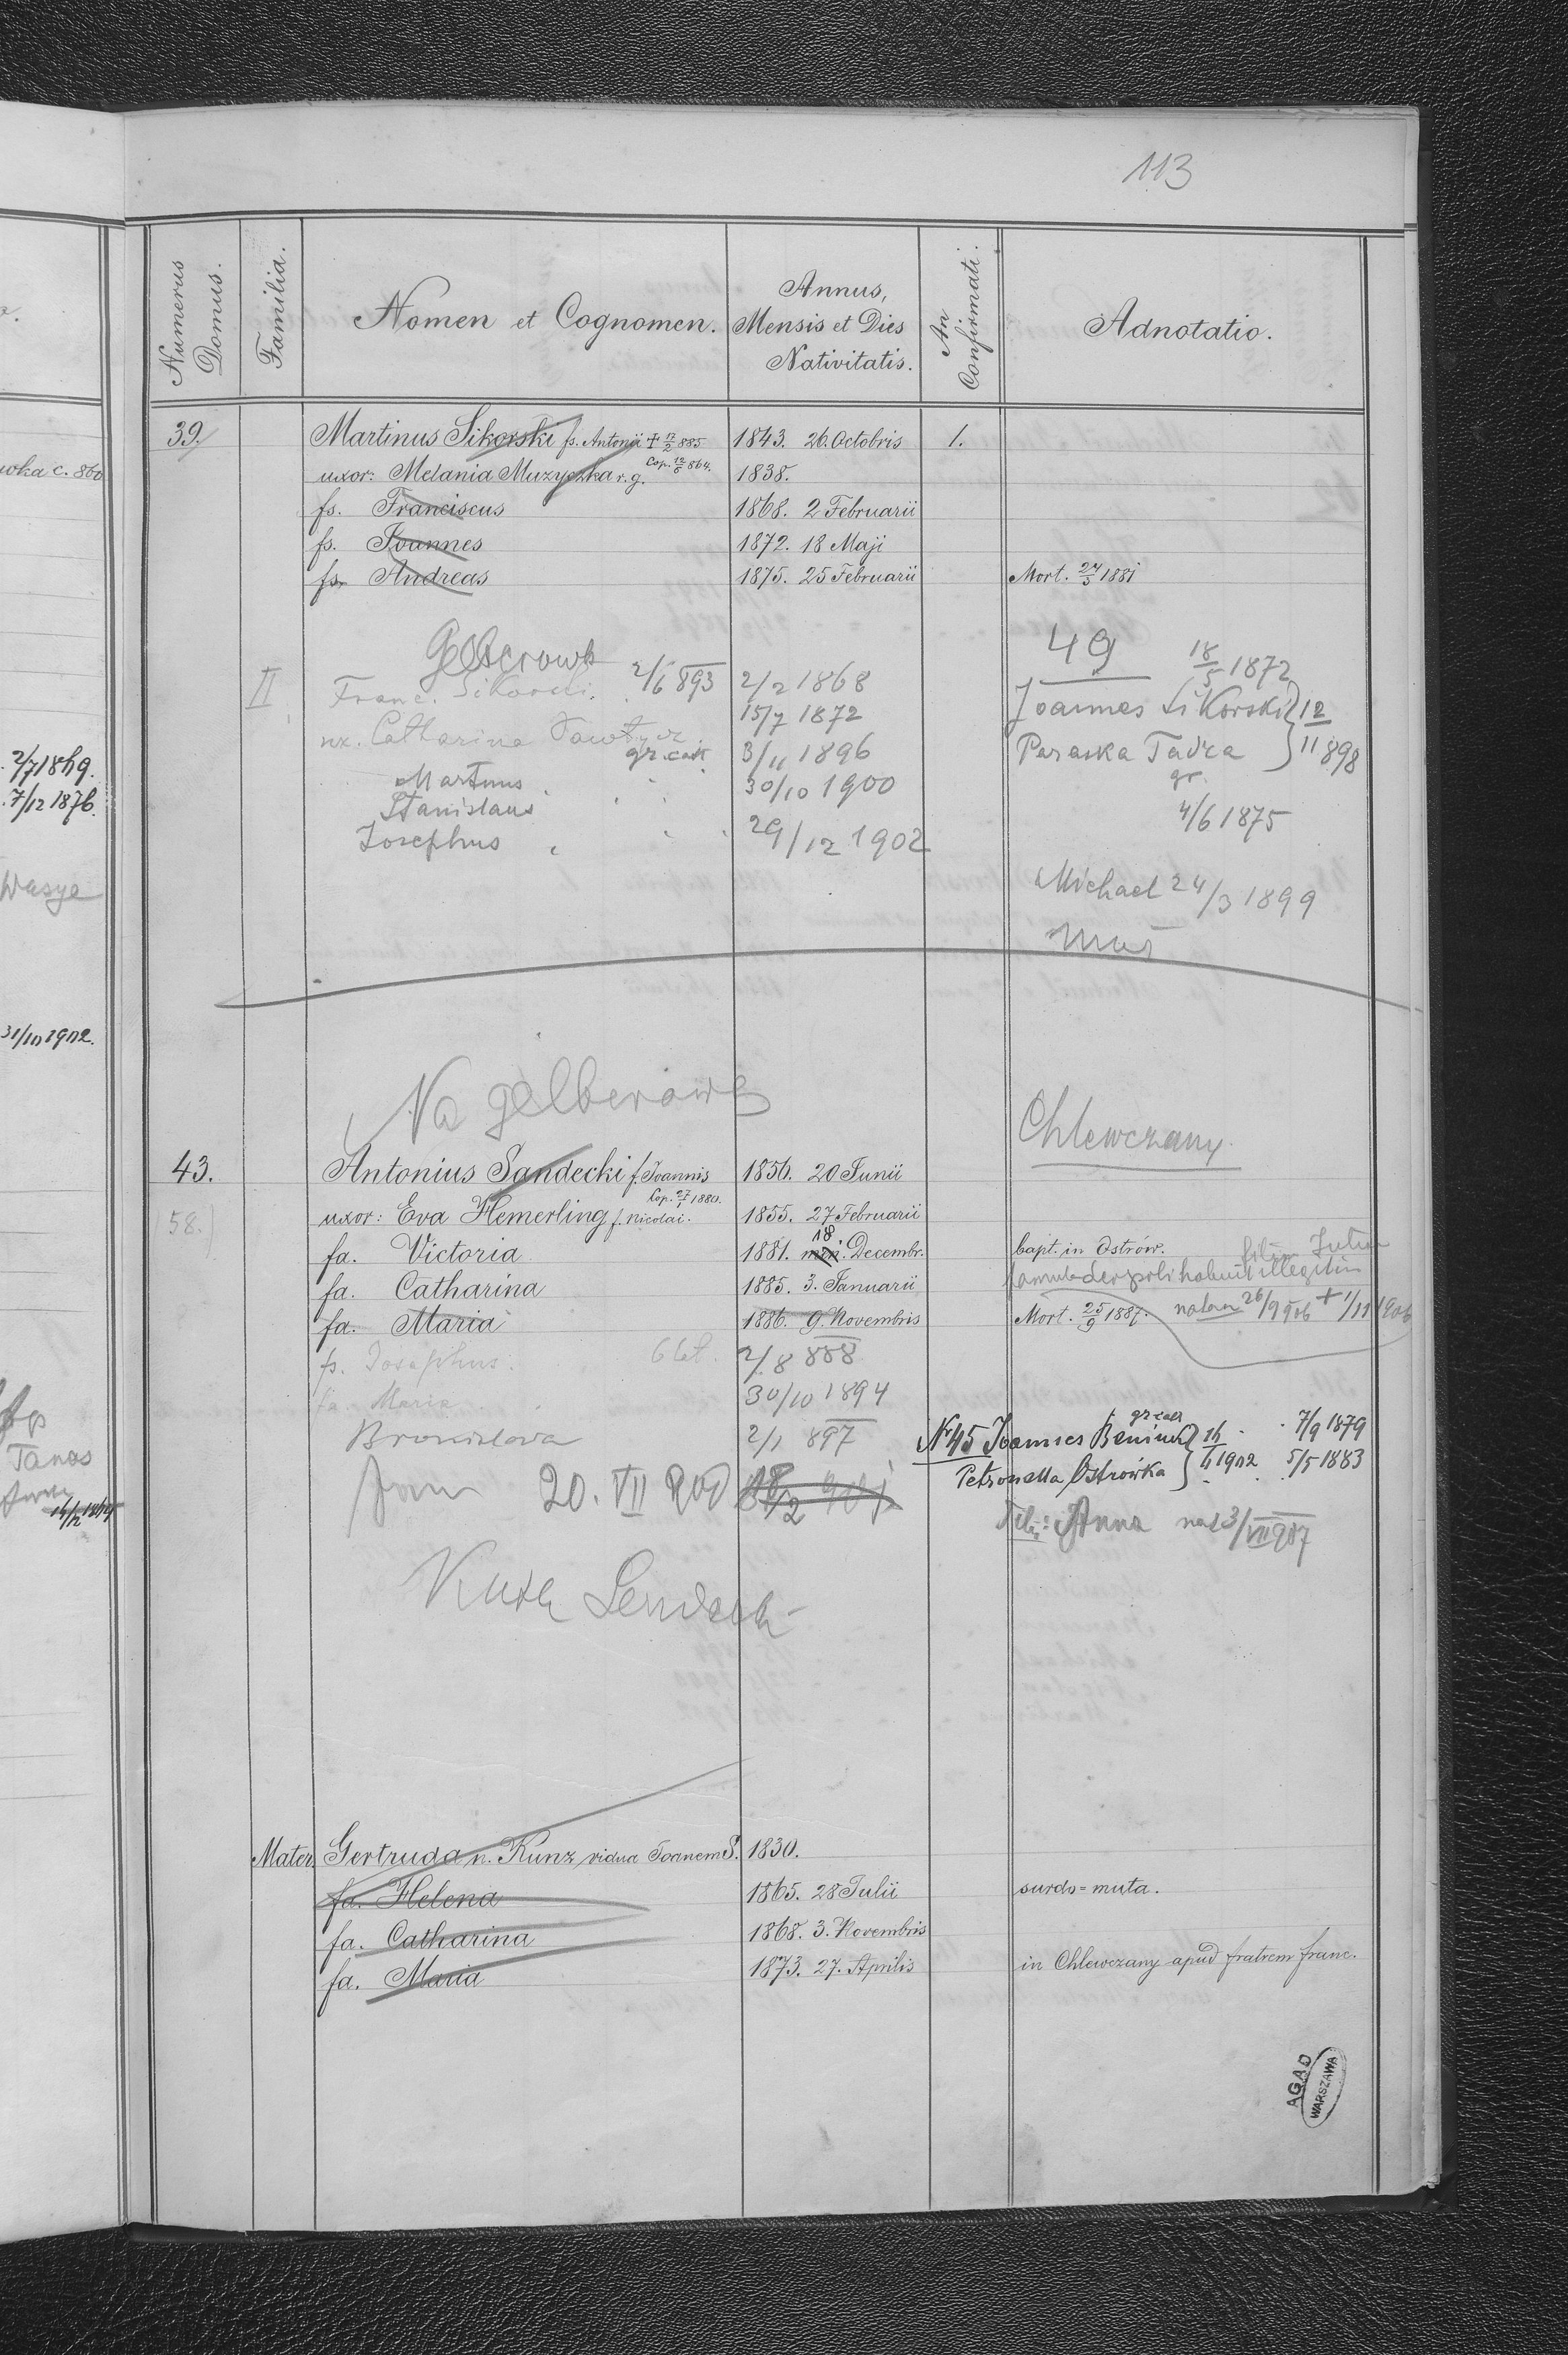 113
Numerus Domus. Familia. Nomen et Cognomen. Annus, Mensis et Dies Nativitatis. An Confirmati. Adnotatio.
39. Martinus Sikorski fs. Antonii + 17/2 885 1843. 26. Octobris 1.
uxor: Melania Muzyczka r. g. Cop. 12/6 864. 1838.
fs. Franciscus 1868. 2 Februarii
fs. Joannes 1872. 18 Maji
fs. Andreas 1875. 25 Februarii Mort. 24/5 1881
49
II Franc. Sikorski 2/6 893 2/2 1868 18/5 1872
ux. Catharina 15/7 1872 Joannes Sikorski } 12/11 898
gr. cat.
Martinus 3/11 1896 Paraska Tadra
gr.
Stanislaus 30/10 1900 4/6 1875
Josephus 29/12 1902
Michael 24/3 1899
Na gelberówk
Chlewczany
43. Antonius Sandecki f. Joannis 1856. 20 Junii
58.) uxor: Eva Hemerling f. Nicolai. Cop. 27/1 1880. 1855. 27 Februarii
fa. Victoria 1881. 18. Decembr. bapt. in Ostrów.
fa. Catharina 1885. 3. Januarii famula Leopoli habuit illegitim
fa. Maria 1886. 9. Novembris Mort. 25/9 1887. natam 26/9 906 + 1/11 1906
fs. Josephus. 6 let. 2/8 888
fa. Maria 30/10 1894
Bronislava 2/1 897
Nr 45 Joannes gr cat } 16/ 1902 7/9 1879
Petronella Ostrówka 5/5 1883
20. VII
Anna 3/VII 907
Mater. Gertruda n. Kunz vidua Joannem S. 1830.
fa. Helena 1865. 28 Julii surdo=muta.
fa. Catharina 1868. 3. Novembris
fa. Maria 1873. 27. Aprilis in Chlewczany apud fratrem franc.
AGAD
WARSZAWA
wka c. 860
2/7 1869.
7/12 1876.
Wasye
31/10 1902.
Tanas